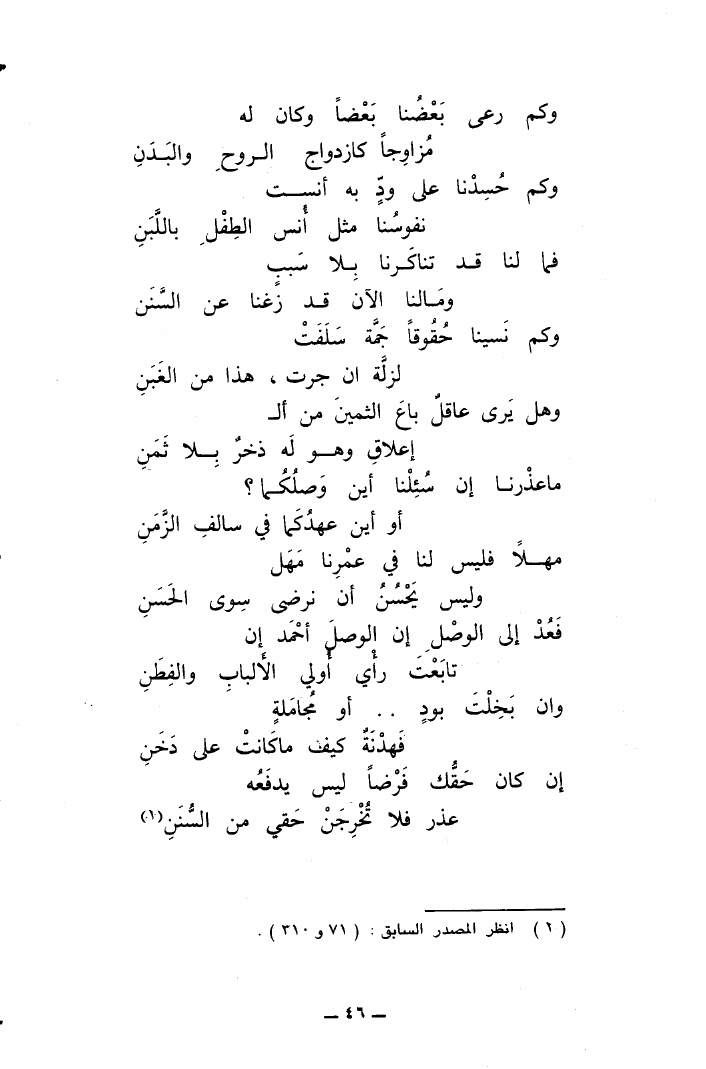 وكم رعى بَعْضُنا بَعْضاً وكان له
مُزاوِجاً كازدواج الروحِ والبَدَنِ
وكم حُسِدْنا على ودٍّ به أنست
نفوسُنا مثل أُنس الطِفْلِ باللَّبَنِ
فما لنا قد تناكَرنا بِلا سَببٍ
ومَالنا الآن قد زُغنا عن السَّنَن
وكم نَسينا حُقُوقاً جَمَّة سَلَفَتْ
لزلَّة ان جرت ، هذا من الغَبَنِ
وهل يَرى عاقلٌ باعَ الثمينَ من ألـ
إعلاقِ وهو لَه ذخرٌ بِلا ثَمَنِ
ماعذرنا إن سُئِلْنا أين وَصلُكُما ؟
أو أين عهدُكما في سالفِ الزَّمَنِ
مهلاً فليس لنا في عمْرِنا مَهَل
وليس يَحْسُنُ أن نرضى سِوى الحَسَنِ
فَعُدْ إلى الوصْلِ إن الوصلَ أحْمَد إن
تابَعْتَ رأي أُولي الألبابِ والفِطَنِ
وان بَخِلْتَ بودٍ . . أو مُجامَلةٍ
فَهِدْنَةٌ كيف ماكَانتْ على دَخَنِ
إن كان حَقُّك فَرْضاً ليس يدفَعُه
عذر فلا تُخْرِجَنْ حَقي من السُّنَنِ(٦)
( ٦ ) انظر المصدر السابق : ( ٧١ و ٣١٠ ) .
– ٤٦ –